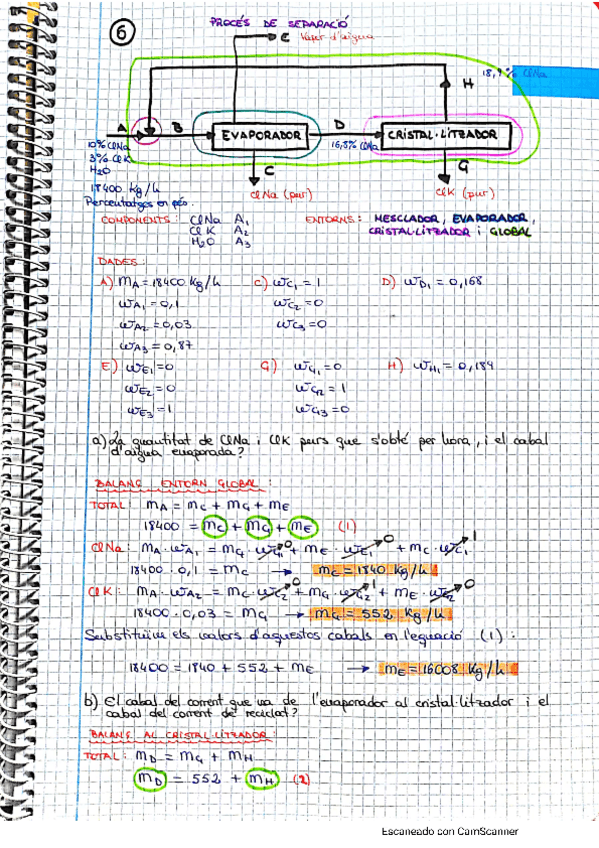 6
PROCÉS DE SEPARACIÓ
E Vapor d'aigua
18,9% ClNa
H
A B EVAPORADOR D CRISTAL·LITZADOR
10% ClNa
3% ClK
H2O
18400 kg/h
Percentatges en pes.
16,8% ClNa
C
ClNa (pur)
G
ClK (pur)
COMPONENTS: ClNa A1
ClK A2
H2O A3
ENTORNS: MESCLADOR, EVAPORADOR,
CRISTAL·LITZADOR i GLOBAL
DADES:
A) mA = 18400 kg/h C) wC1 = 1 D) wD1 = 0,168
wA1 = 0,1 wC2 = 0
wA2 = 0,03 wC3 = 0
wA3 = 0,87
E) wE1 = 0 G) wG1 = 0 H) wH1 = 0,189
wE2 = 0 wG2 = 1
wE3 = 1 wG3 = 0
a) La quantitat de ClNa i ClK purs que s'obté per hora, i el cabal
d'aigua evaporada?
BALANÇ ENTORN GLOBAL:
TOTAL: mA = mC + mG + mE
18400 = mC + mG + mE (1)
ClNa: mA · wA1 = mG · wG1 0 + mE · wE1 0 + mC · wC1 1
18400 · 0,1 = mC → mC = 1840 kg/h
ClK: mA · wA2 = mC · wC2 0 + mG · wG2 1 + mE · wE2 0
18400 · 0,03 = mG → mG = 552 kg/h
Substituïm els valors d'aquestos cabals en l'equació (1):
18400 = 1840 + 552 + mE → mE = 16008 kg/h
b) El cabal del corrent que va de l'evaporador al cristal·litzador i el
cabal del corrent de reciclat?
BALANÇ AL CRISTAL·LITZADOR:
TOTAL: mD = mG + mH
mD = 552 + mH (2)
Escaneado con CamScanner